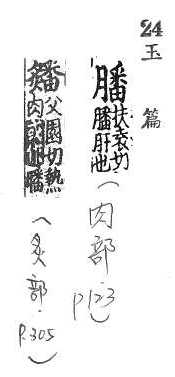 24
玉篇
膰
扶袁切
膰肝也
（肉部
p123）
父園切熟
肉 膰
（炙部
p.305）